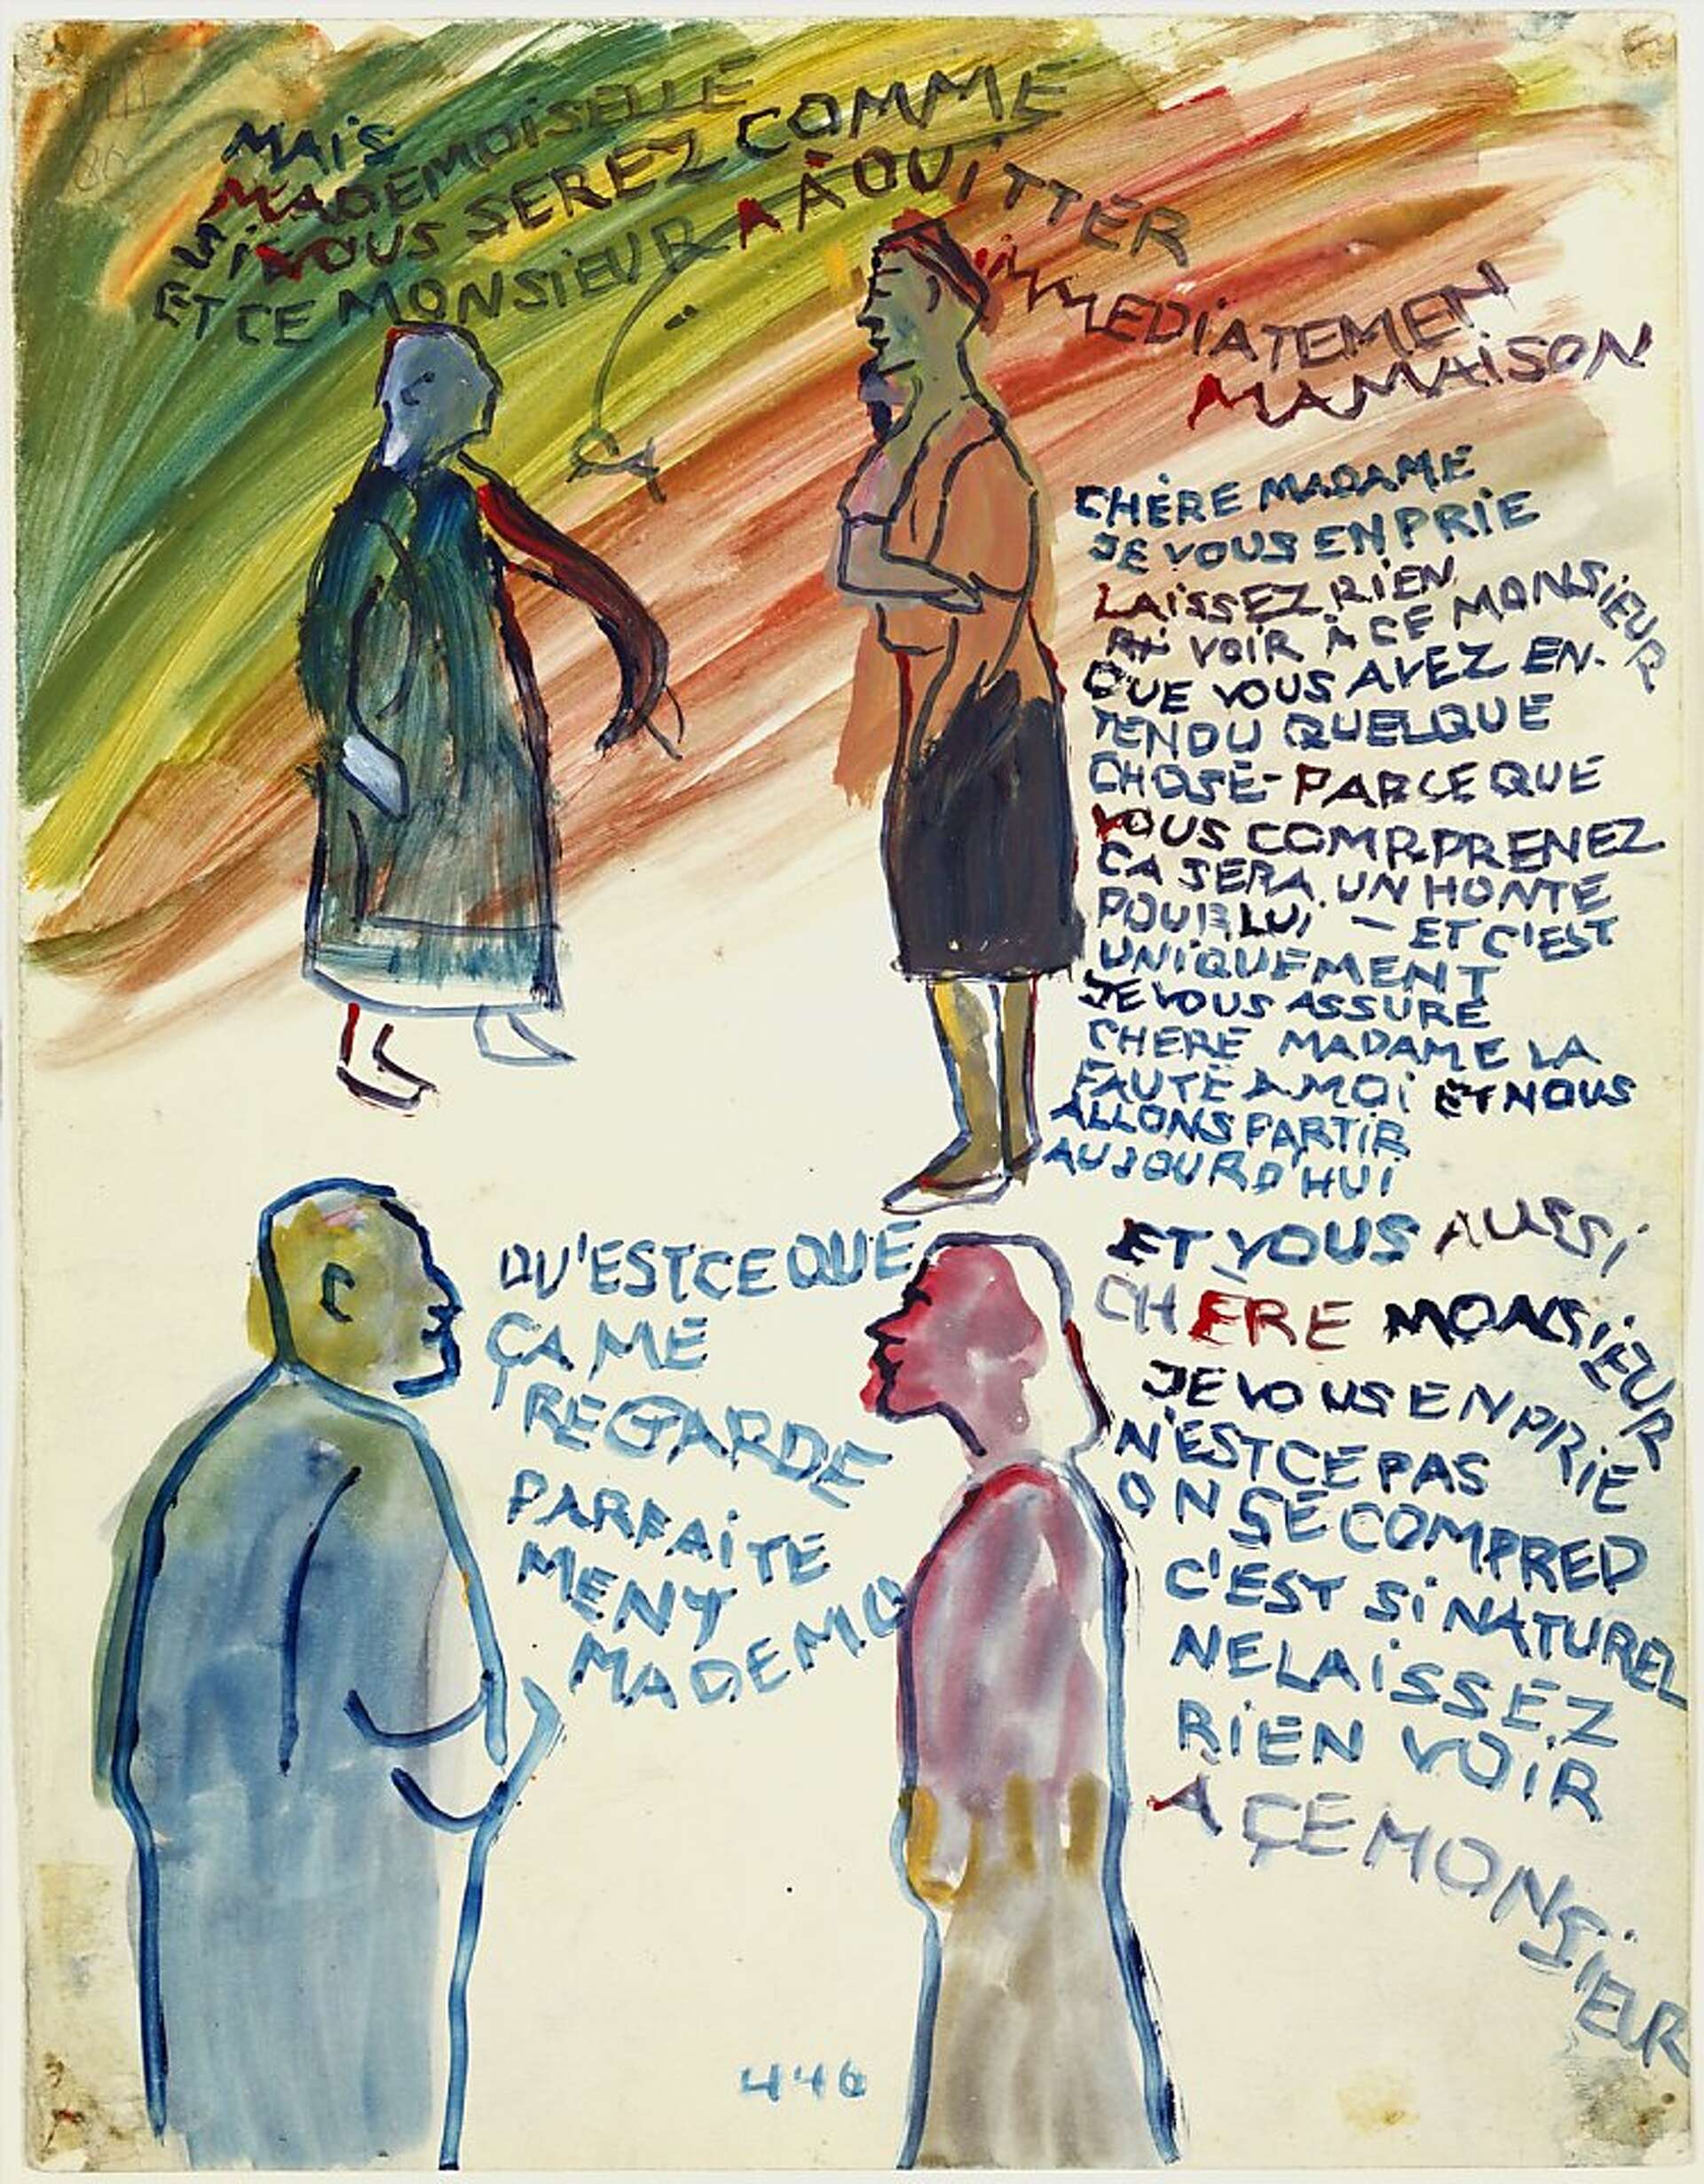 MAIS
MADEMOISELLE
SI VOUS SEREZ COMME
ET CE MONSIEUR A À QUITTER
IMMEDIATEMEN
MA MAISON
CHÈRE MADAME
JE VOUS EN PRIE
LAISSEZ RIEN
VOIR À CE MONSIEUR
QUE VOUS AVEZ EN-
TENDU QUELQUE
CHOSE- PARCE QUE
VOUS COMPRPRENEZ
CA SERA UN HONTE
POUR LUI — ET C'EST
UNIQUEMENT
JE VOUS ASSURE
CHERE MADAME LA
FAUTE A MOI ET NOUS
ALLONS PARTIR
AUJOURD'HUI
QU'EST CE QUE
ÇA ME
REGARDE
PARFAITE
MENT
MADEMO
ET VOUS AUSSI
CHÈRE MONSIEUR
JE VOUS EN PRIE
N'EST CE PAS
ON SE COMPRED
C'EST SI NATUREL
NE LAISSEZ
RIEN VOIR
A ÇE MONSIEUR
446